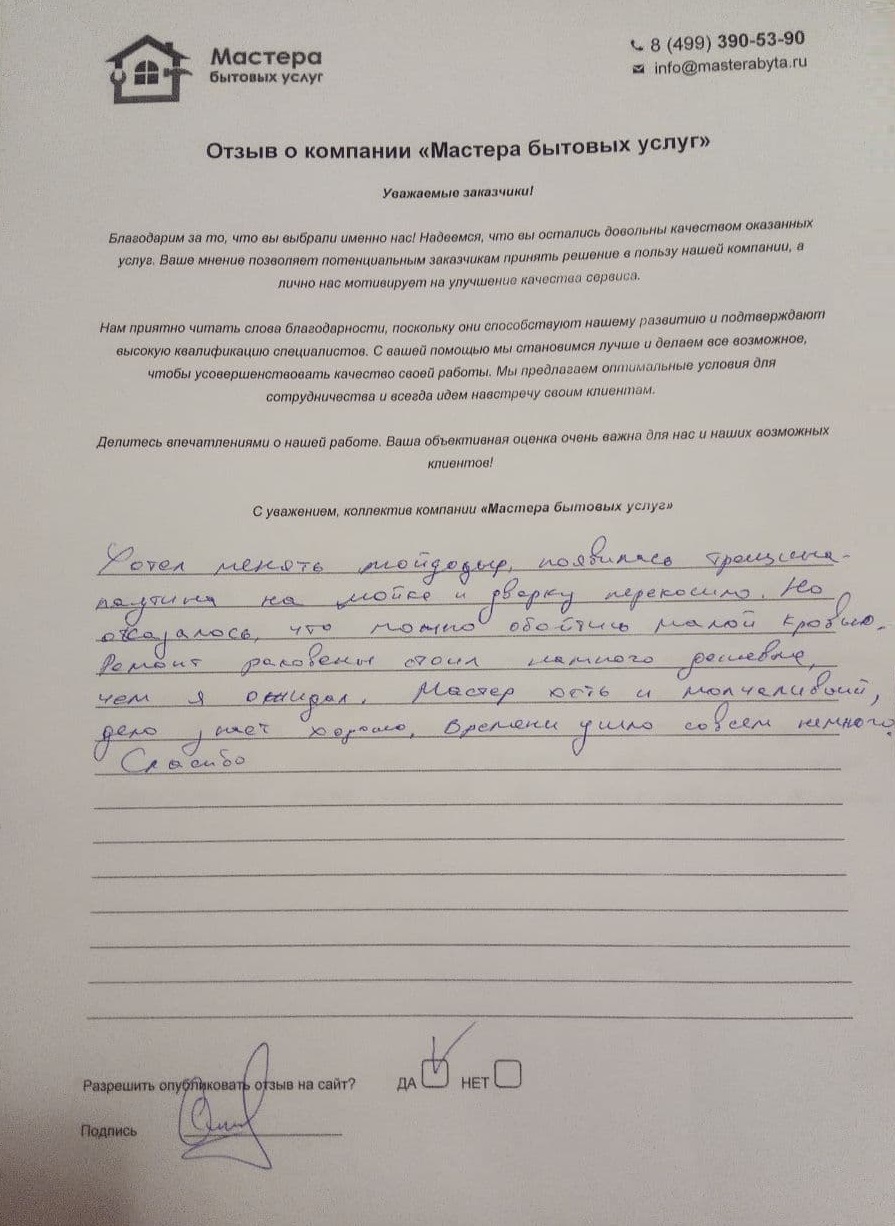 Мастера
бытовых услуг
8 (499) 390-53-90
info@masterabyta.ru
Отзыв о компании «Мастера бытовых услуг»
Уважаемые заказчики!
Благодарим за то, что вы выбрали именно нас! Надеемся, что вы остались довольны качеством оказанных
услуг. Ваше мнение позволяет потенциальным заказчикам принять решение в пользу нашей компании, а
лично нас мотивирует на улучшение качества сервиса.
Нам приятно читать слова благодарности, поскольку они способствуют нашему развитию и подтверждают
высокую квалификацию специалистов. С вашей помощью мы становимся лучше и делаем все возможное,
чтобы усовершенствовать качество своей работы. Мы предлагаем оптимальные условия для
сотрудничества и всегда идем навстречу своим клиентам.
Делитесь впечатлениями о нашей работе. Ваша объективная оценка очень важна для нас и наших возможных
клиентов!
С уважением, коллектив компании «Мастера бытовых услуг»
Хотел менять мойдодыр, появилась трещина-
паутина на мойке и дверку перекосило. Но
оказалось, что можно обойтись малой кровью.
Ремонт раковины стоил намного дешевле,
чем я ожидал. Мастер хоть и молчаливый,
дело знает хорошо, времени ушло совсем немного.
Спасибо
Разрешить опубликовать отзыв на сайт? ДА НЕТ
Подпись